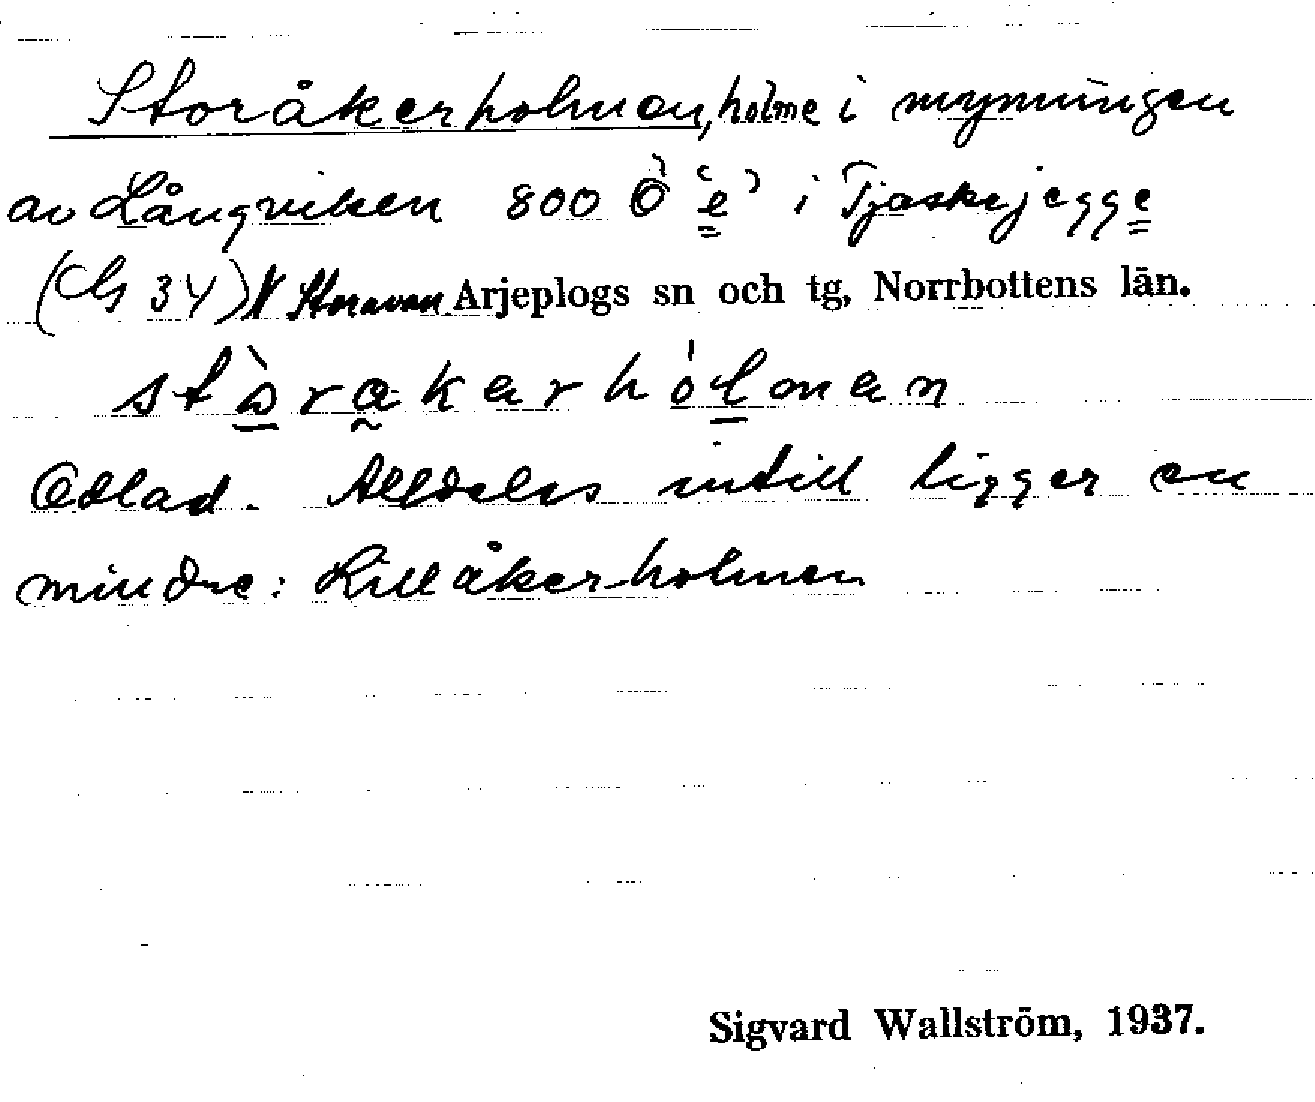 Storåkerholmen, holme i mynningen
av Långviken 800 Ö "e" i Tjaskejegge
(Cb 34) Storavan Arjeplogs sn och tg, Norrbottens län.
stòrakerhólmen
Odlad. Alldeles intill ligger en
mindre: Lillåkerholmen
Sigvard Wallström, 1937.